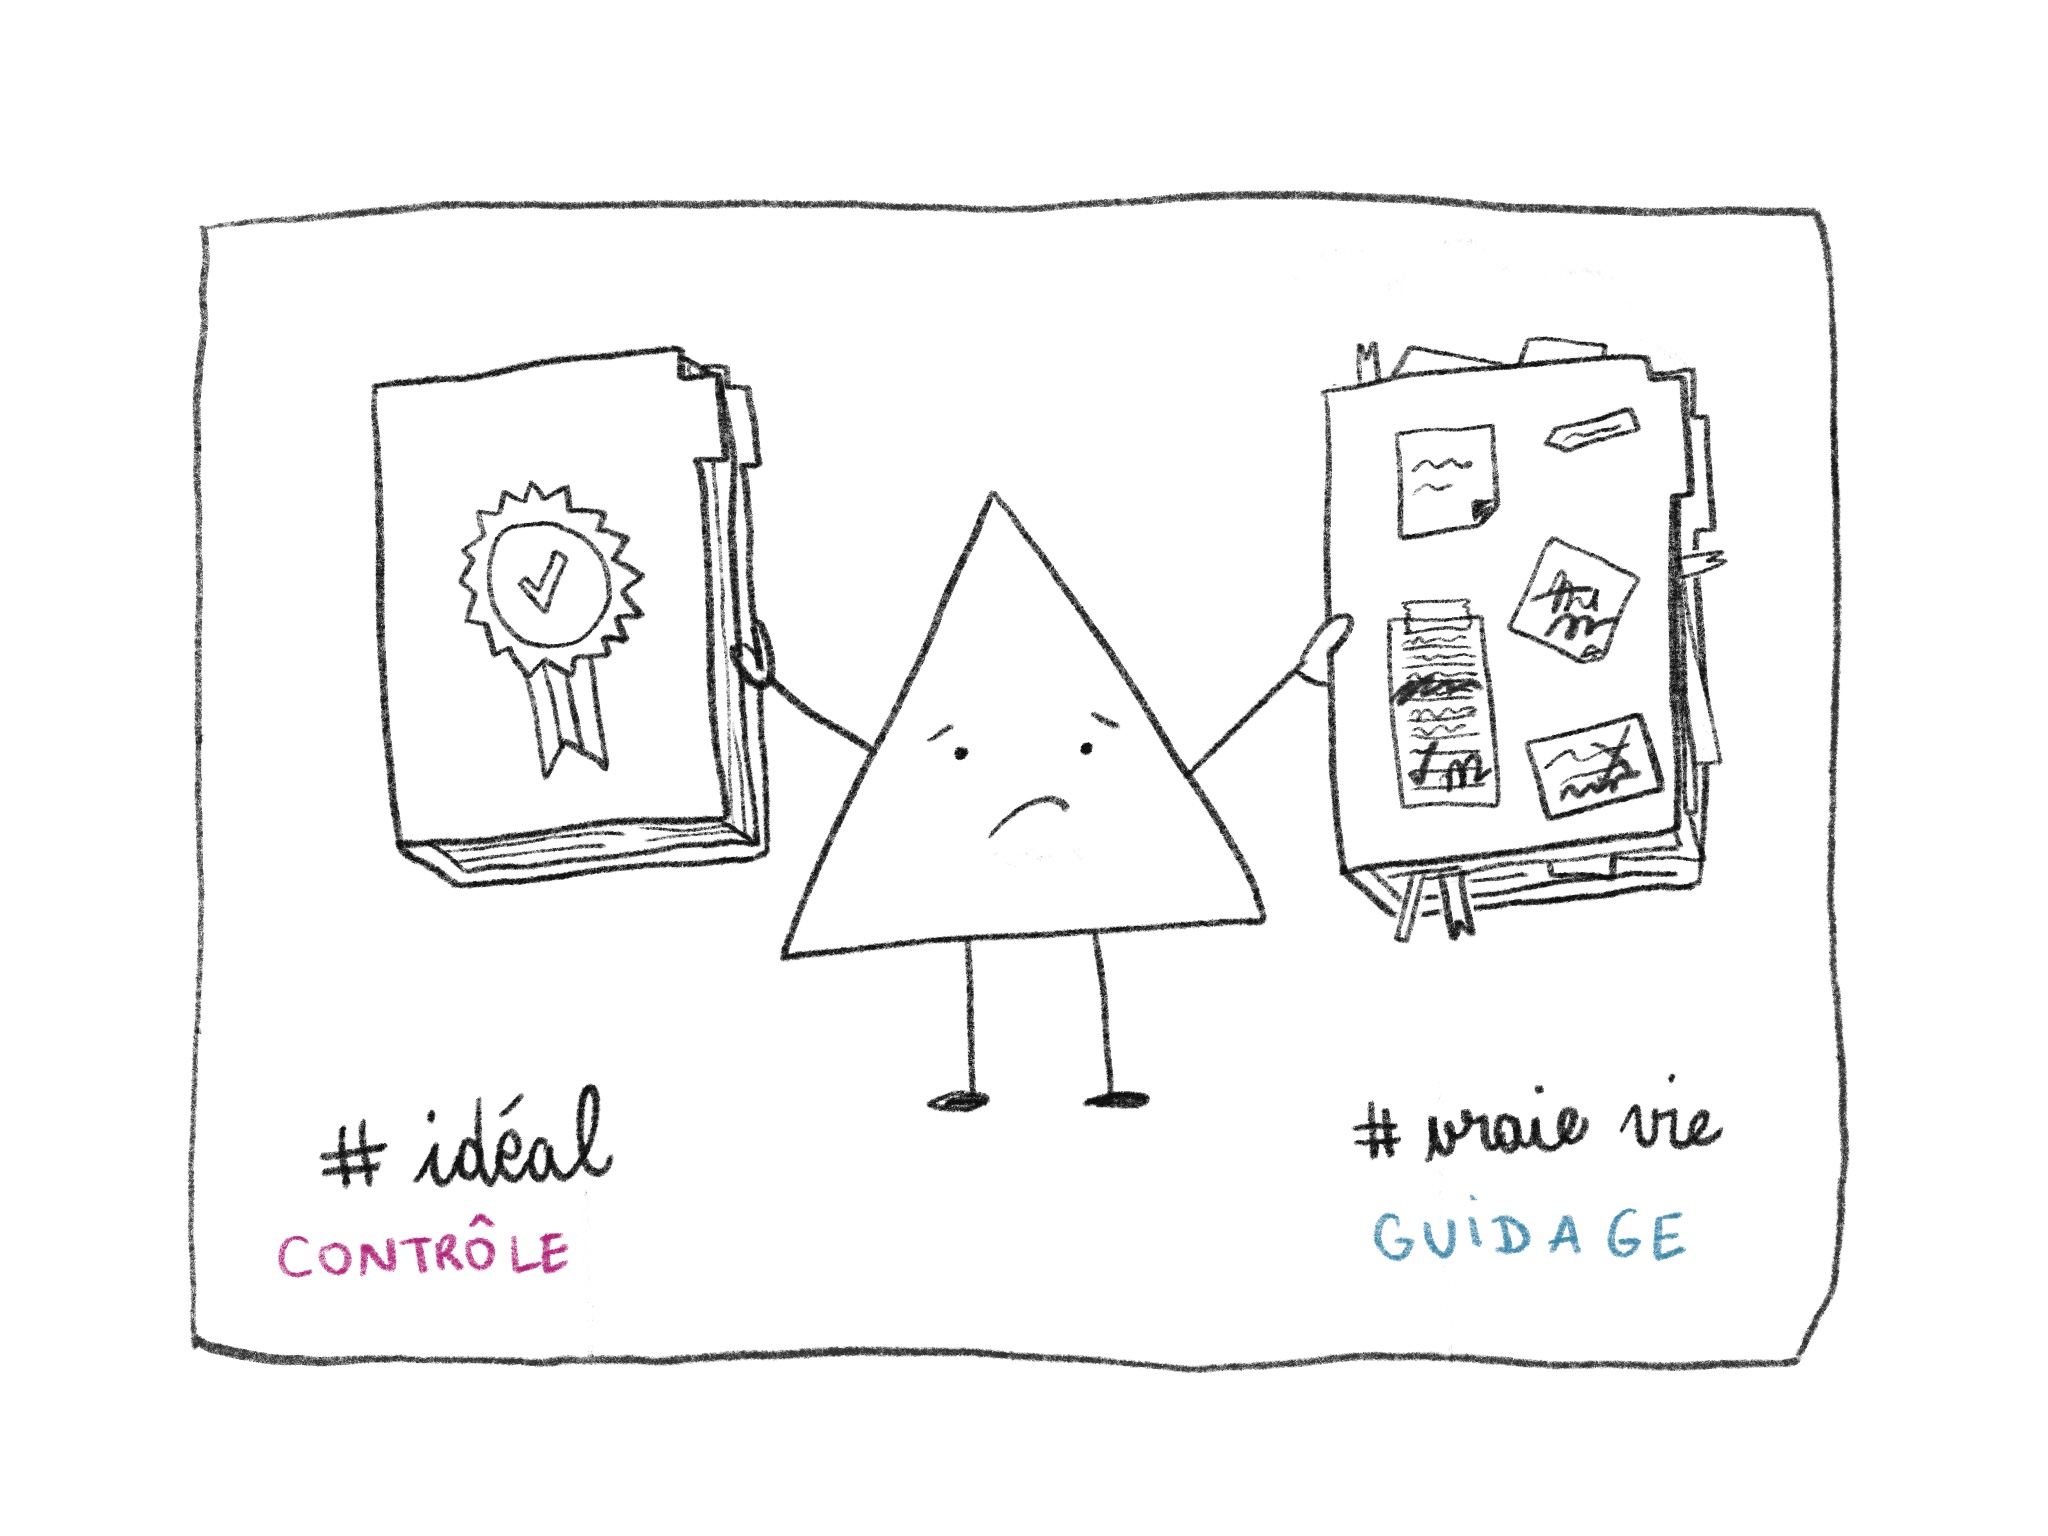 # idéal
CONTRÔLE
# vraie vie
GUIDAGE